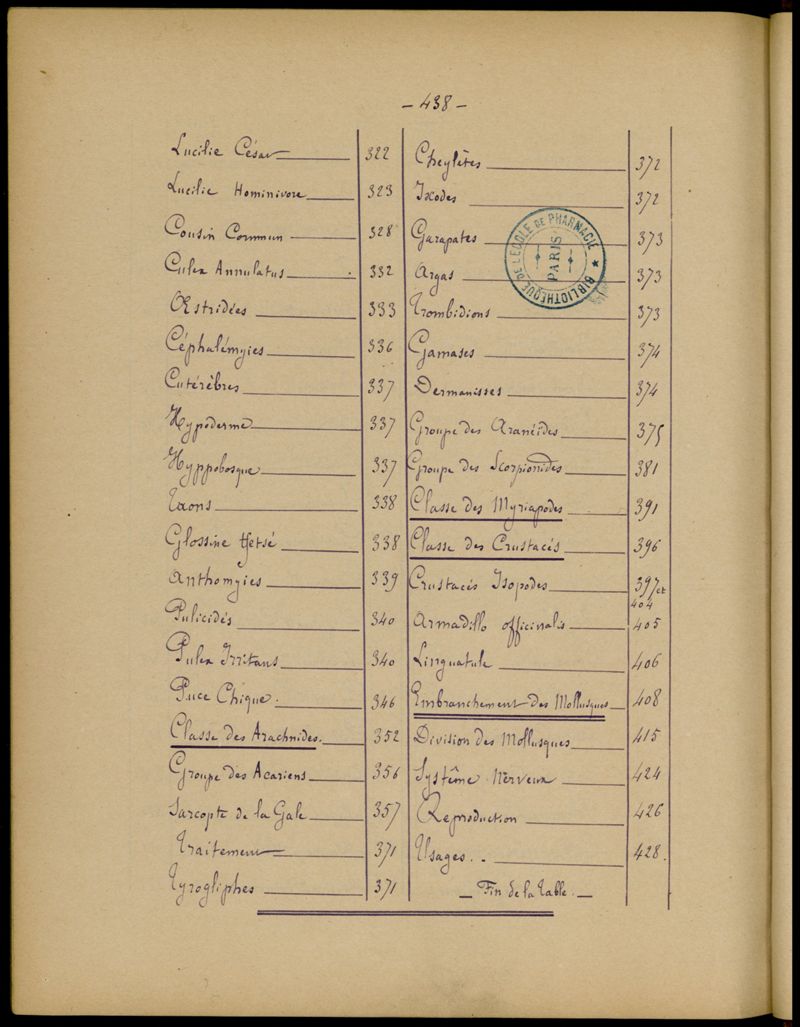 - 438 -
Lucilie César 322
Lucilie Hominivore 323
Cousin Commun 328
Culex Annulatus 332
Œstridées 333
Céphalémyies 336
Cutérèbres 337
Hypoderme 337
Hyppobosque 337
Taons 338
Glossine tsetsé 338
Anthomyies 339
Pulicidés 340
Pulex Irritans 340
Puce Chique. 346
Classe des Arachnides. 352
Groupe des Acariens 356
Sarcopte de la Gale 357
Traitement 371
Tyrogliphes 371
Cheylètes 372
Ixodes 372
Garapates 373
Argas 373
Trombidions 373
Gamases 374
Dermanisses 374
Groupe des Aranéides 375
Groupe des Scorpionides 381
Classe des Myriapodes 391
Classe des Crustacés 396
Crustacés Isopodes 397 et
404
Armadillo officinalis 405
Linguatule 406
Embranchement des Mollusques 408
Division des Mollusques 415
Système Nerveux 424
Reproduction 426
Usages.. 428.
- Fin de la Table. -
BIBLIOTHÈQUE DE L'ECOLE DE PHARMACIE
PARIS